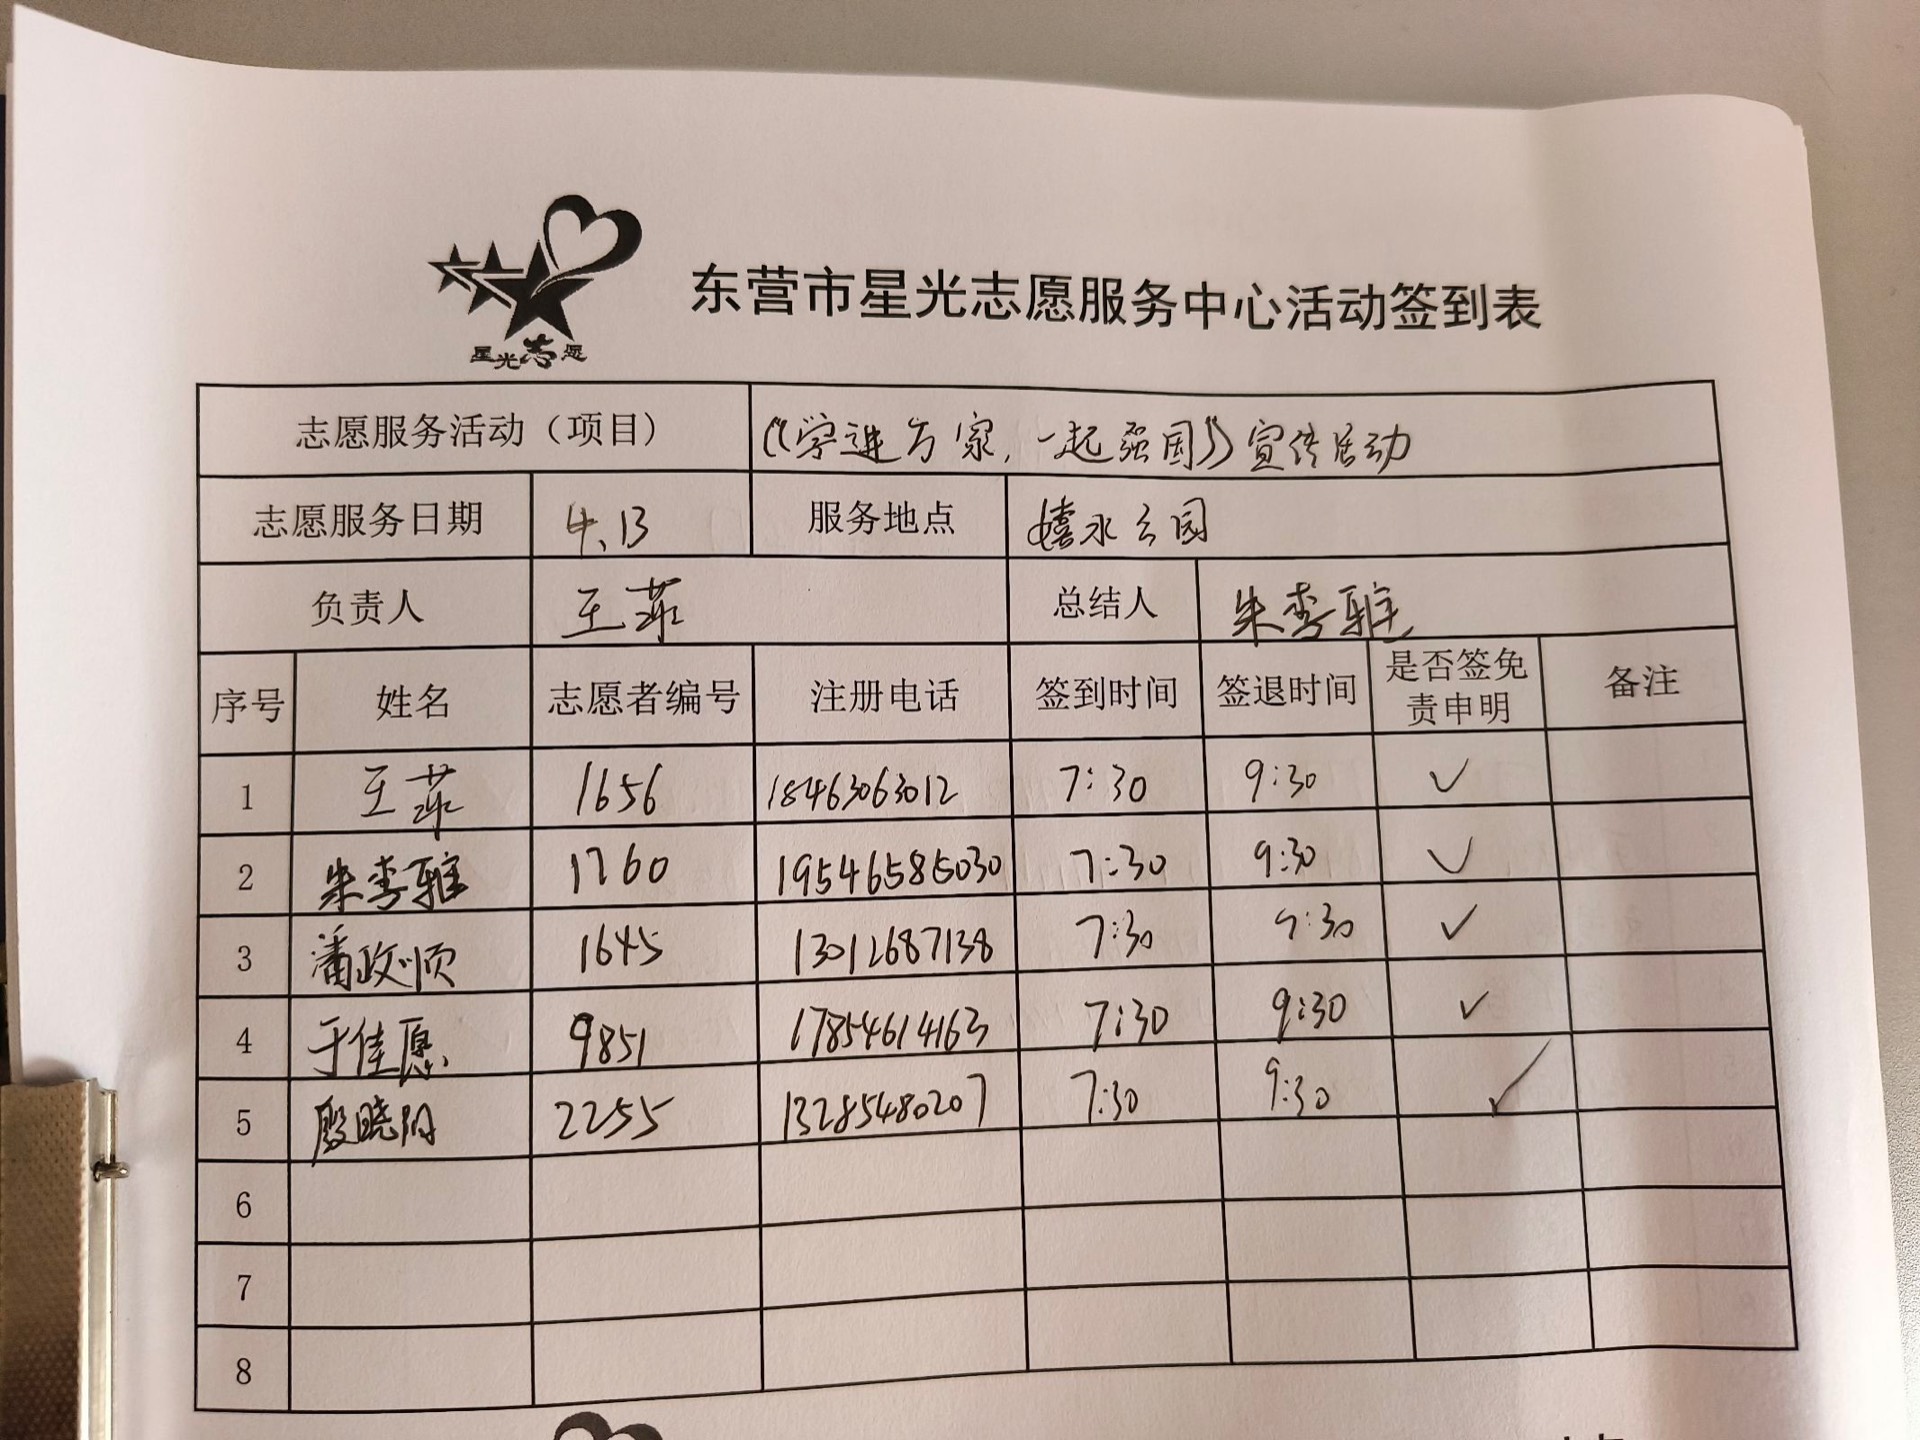 星光志愿
东营市星光志愿服务中心活动签到表
志愿服务活动（项目） 《学进万家，一起强国》宣传活动
志愿服务日期 4.13 服务地点 嬉水公园
负责人 王菲 总结人 朱秀雅
序号 姓名 志愿者编号 注册电话 签到时间 签退时间 是否签免责申明 备注
1 王菲 1656 18463063012 7:30 9:30 ✓
2 朱秀雅 1760 19546585030 7:30 9:30 ✓
3 潘政顺 1645 13012687138 7:30 9:30 ✓
4 于佳愿 9851 17854614163 7:30 9:30 ✓
5 殷晓阳 2255 13285480207 7:30 9:30 ✓
6
7
8